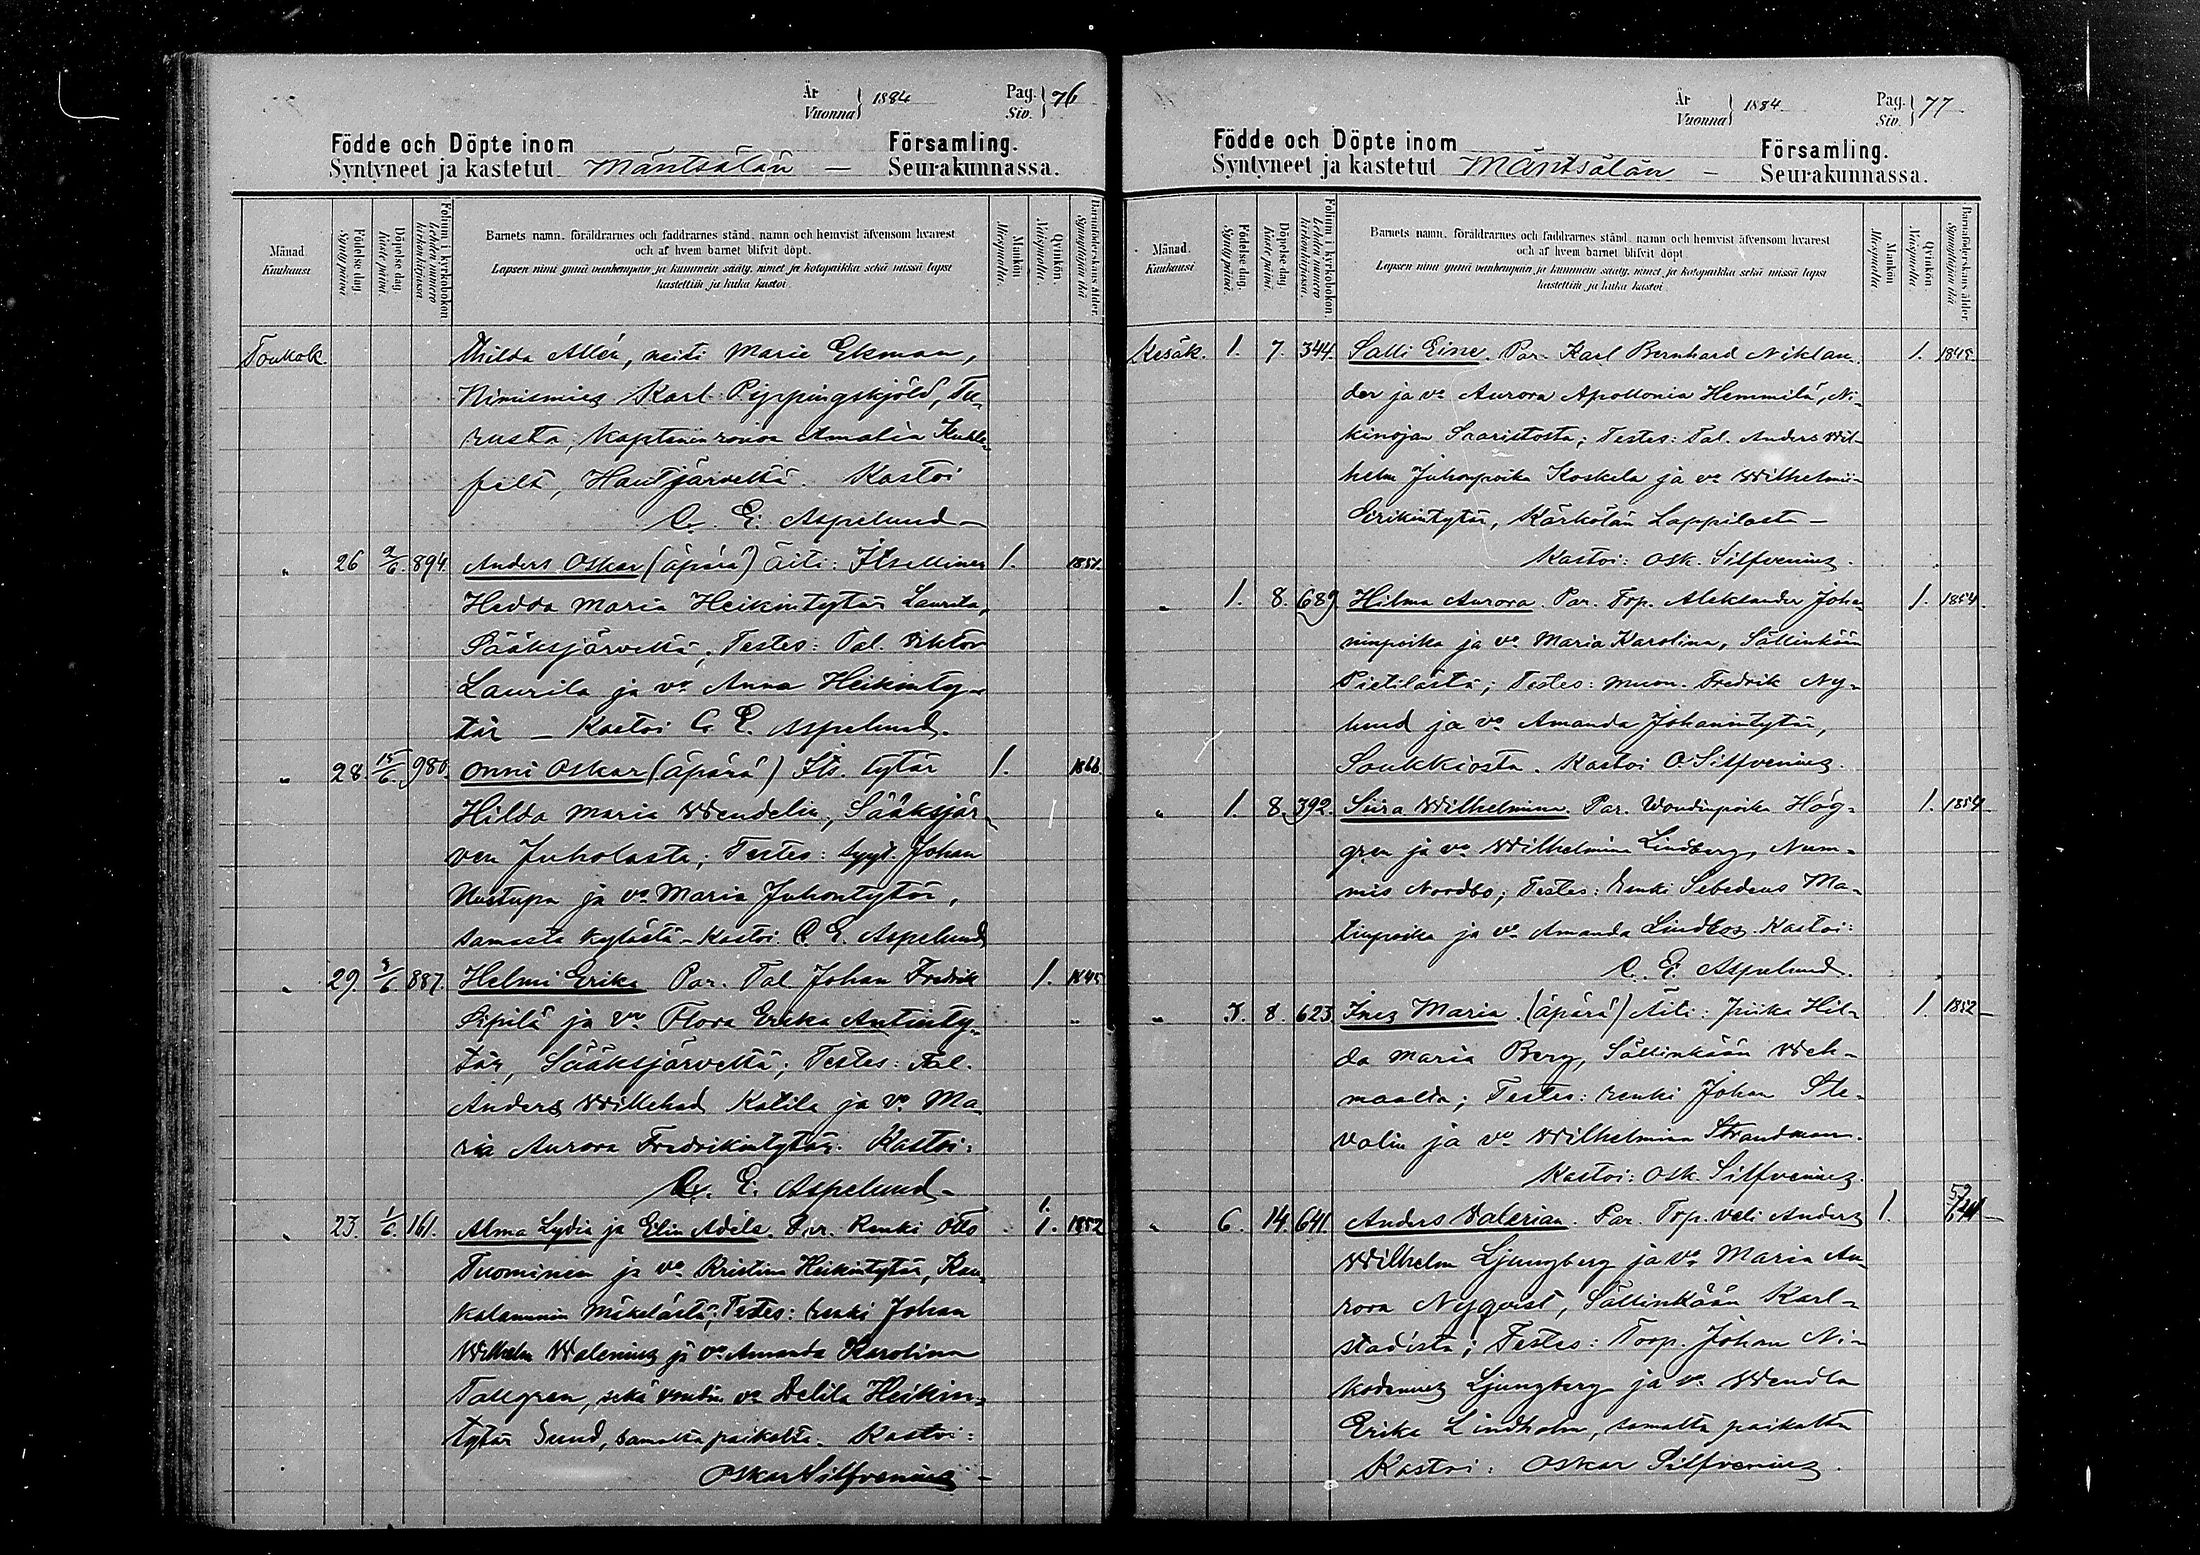 År
Vuonna } 1884
Pag.
Siv. } 76
Födde och Döpte inom Församling.
Syntyneet ja kastetut Mäntsälän — Seurakunnassa.
Månad.
Kuukausi
Födelse dag.
Synty päivä
Döpelse dag.
Kaste päivä
Folium i kyrkoboken.
Lehden numero kirkonkirjassa
Barnets namn, föräldrarnes och faddrarnes stånd, namn och hemvist äfvensom hvarest
och af hvem barnet blifvit döpt.
Lapsen nimi ynnä vanhempain ja kummein sääty, nimet ja kotopaikka sekä missä lapsi
kastettiin ja kuka kastoi
Mankön
Miespuolta.
Qvinkön.
Vaispuolta.
Barnaföderskans ålder.
Synnyttäjän ikä
Toukok. Hilda Allén, neiti Marie Ekman,
Nimismies Karl Pippingskjöld,
rusta, kaptenin rouva Amalia
felt, Hautjärveltä. Kastoi
C. E. Aspelund —
" 26 2/6 894. Anders Oskar (äpärä) Äiti: Itsellinen 1. 1851.
Hedda Maria Heikintytär Laurila,
Sääksjärveltä, Testes: Tal. Viktor
Laurila ja vo Anna Heikinty-
tär — Kastoi C. E. Aspelund.
" 28. 15/6 980. Onni Oskar (äpärä) Its. tytär 1. 1866
Hilda Maria Wendelin, Sääksjär-
ven Juholasta; Testes: Johan
ja vo Maria Juhontytär,
samasta kylästä — Kastoi C. E. Aspelund
" 29. /6 887. Helmi Erika Par. Tal Johan Fredrik 1. 1845
Sipilä ja vo Flora Erika Antinty-
tär, Sääksjärveltä; Testes: Tal.
Anders Willehad Katila ja vo Ma-
ria Aurora Fredrikintytär. Kastoi:
C. E. Aspelund —
" 23. 1/6 161. Alma Lydia ja Elin Adéla. Par. Renki Otto 1. 1. 1852
Tuominen ja vo Kristina Heikintytär, Kau-
kalammin Mäkelästä; Testes: renki Johan
Wilhelm Walenius ja vo Amanda Karolina
Tallgren, sekä voudin vo Delila Heikin-
tytär Sund, samalta paikalta. Kastoi:
Oskar Silfvenius —
År
Vuonna } 1884
Pag.
Siv. } 77
Födde och Döpte inom Församling.
Syntyneet ja kastetut Mäntsälän — Seurakunnassa.
Månad.
Kuukausi
Födelse dag.
Synty päivä.
Döpelse dag.
Kaste päivä.
Folium i kyrkoboken.
Lehden numero kirkonkirjassa.
Barnets namn, föräldrarnes och faddrarnes stånd, namn och hemvist äfvensom hvarest
och af hvem barnet blifvit döpt
Lapsen nimi ynnä vanhempain ja kummein sääty, nimet ja kotopaikka sekä missä lapsi
kastettiin ja kuka kastoi
Mankön
Miespuolta
Qvinkön
Vaispuolta.
Barnaföderskans ålder
Synnyttäjän ikä
Kesäk. 1. 7. 344. Salli Eine. Par. Karl Bernhard Niklan- 1.
der ja vo Aurora Apollonia Hemmilä, Ni-
kinojan Saaristosta; Testes: Tal. Anders Wil-
helm Juhonpoika Koskela ja vo Wilhelmi-
Erikintytär, Kärkölän Lappilasta —
Kastoi: Osk. Silfvenius.
" 1. 8. 689 Hilma Aurora. Par. Trp. Aleksander Joha- 1. 1854.
ninpoika ja vo Maria Karolina, Sällinkään
Pietilästä; Testes: muon. Fredrik Ny-
lund ja vo Amanda Johanintytär,
Soukkiosta. Kastoi O Silfvenius.
" 1. 8. 392. Siira Wilhelmina. Par. Woudinpoika Hög- 1. 1854
gren ja vo Wilhelmina Lindberg, Num-
mis Nordbo; Testes: renki Sebedeus Ma-
tinpoika ja vo Amanda Lindfors. Kastoi:
C. E. Aspelund.
" 3. 8. 623. Ines Maria. (äpärä) Äiti: Piika Hil- 1. 1852
da Maria Berg, Sällinkään Weh-
maalta; Testes: renki Johan Ste-
valin ja vo Wilhelmina Strandman.
Kastoi: Osk. Silfvenius.
" 6. 14. 641. Anders Valerian. Par. Trp. veli Anders 1.
Wilhelm Ljungberg ja vo Maria Au-
rora Nyqvist, Sällinkään Karl-
stadista; Testes: Torp. Johan Ni-
kodemus Ljungberg ja vo Wendla
Erika Lindholm, samalta paikalta
Kastoi: Oskar Silfvenius.